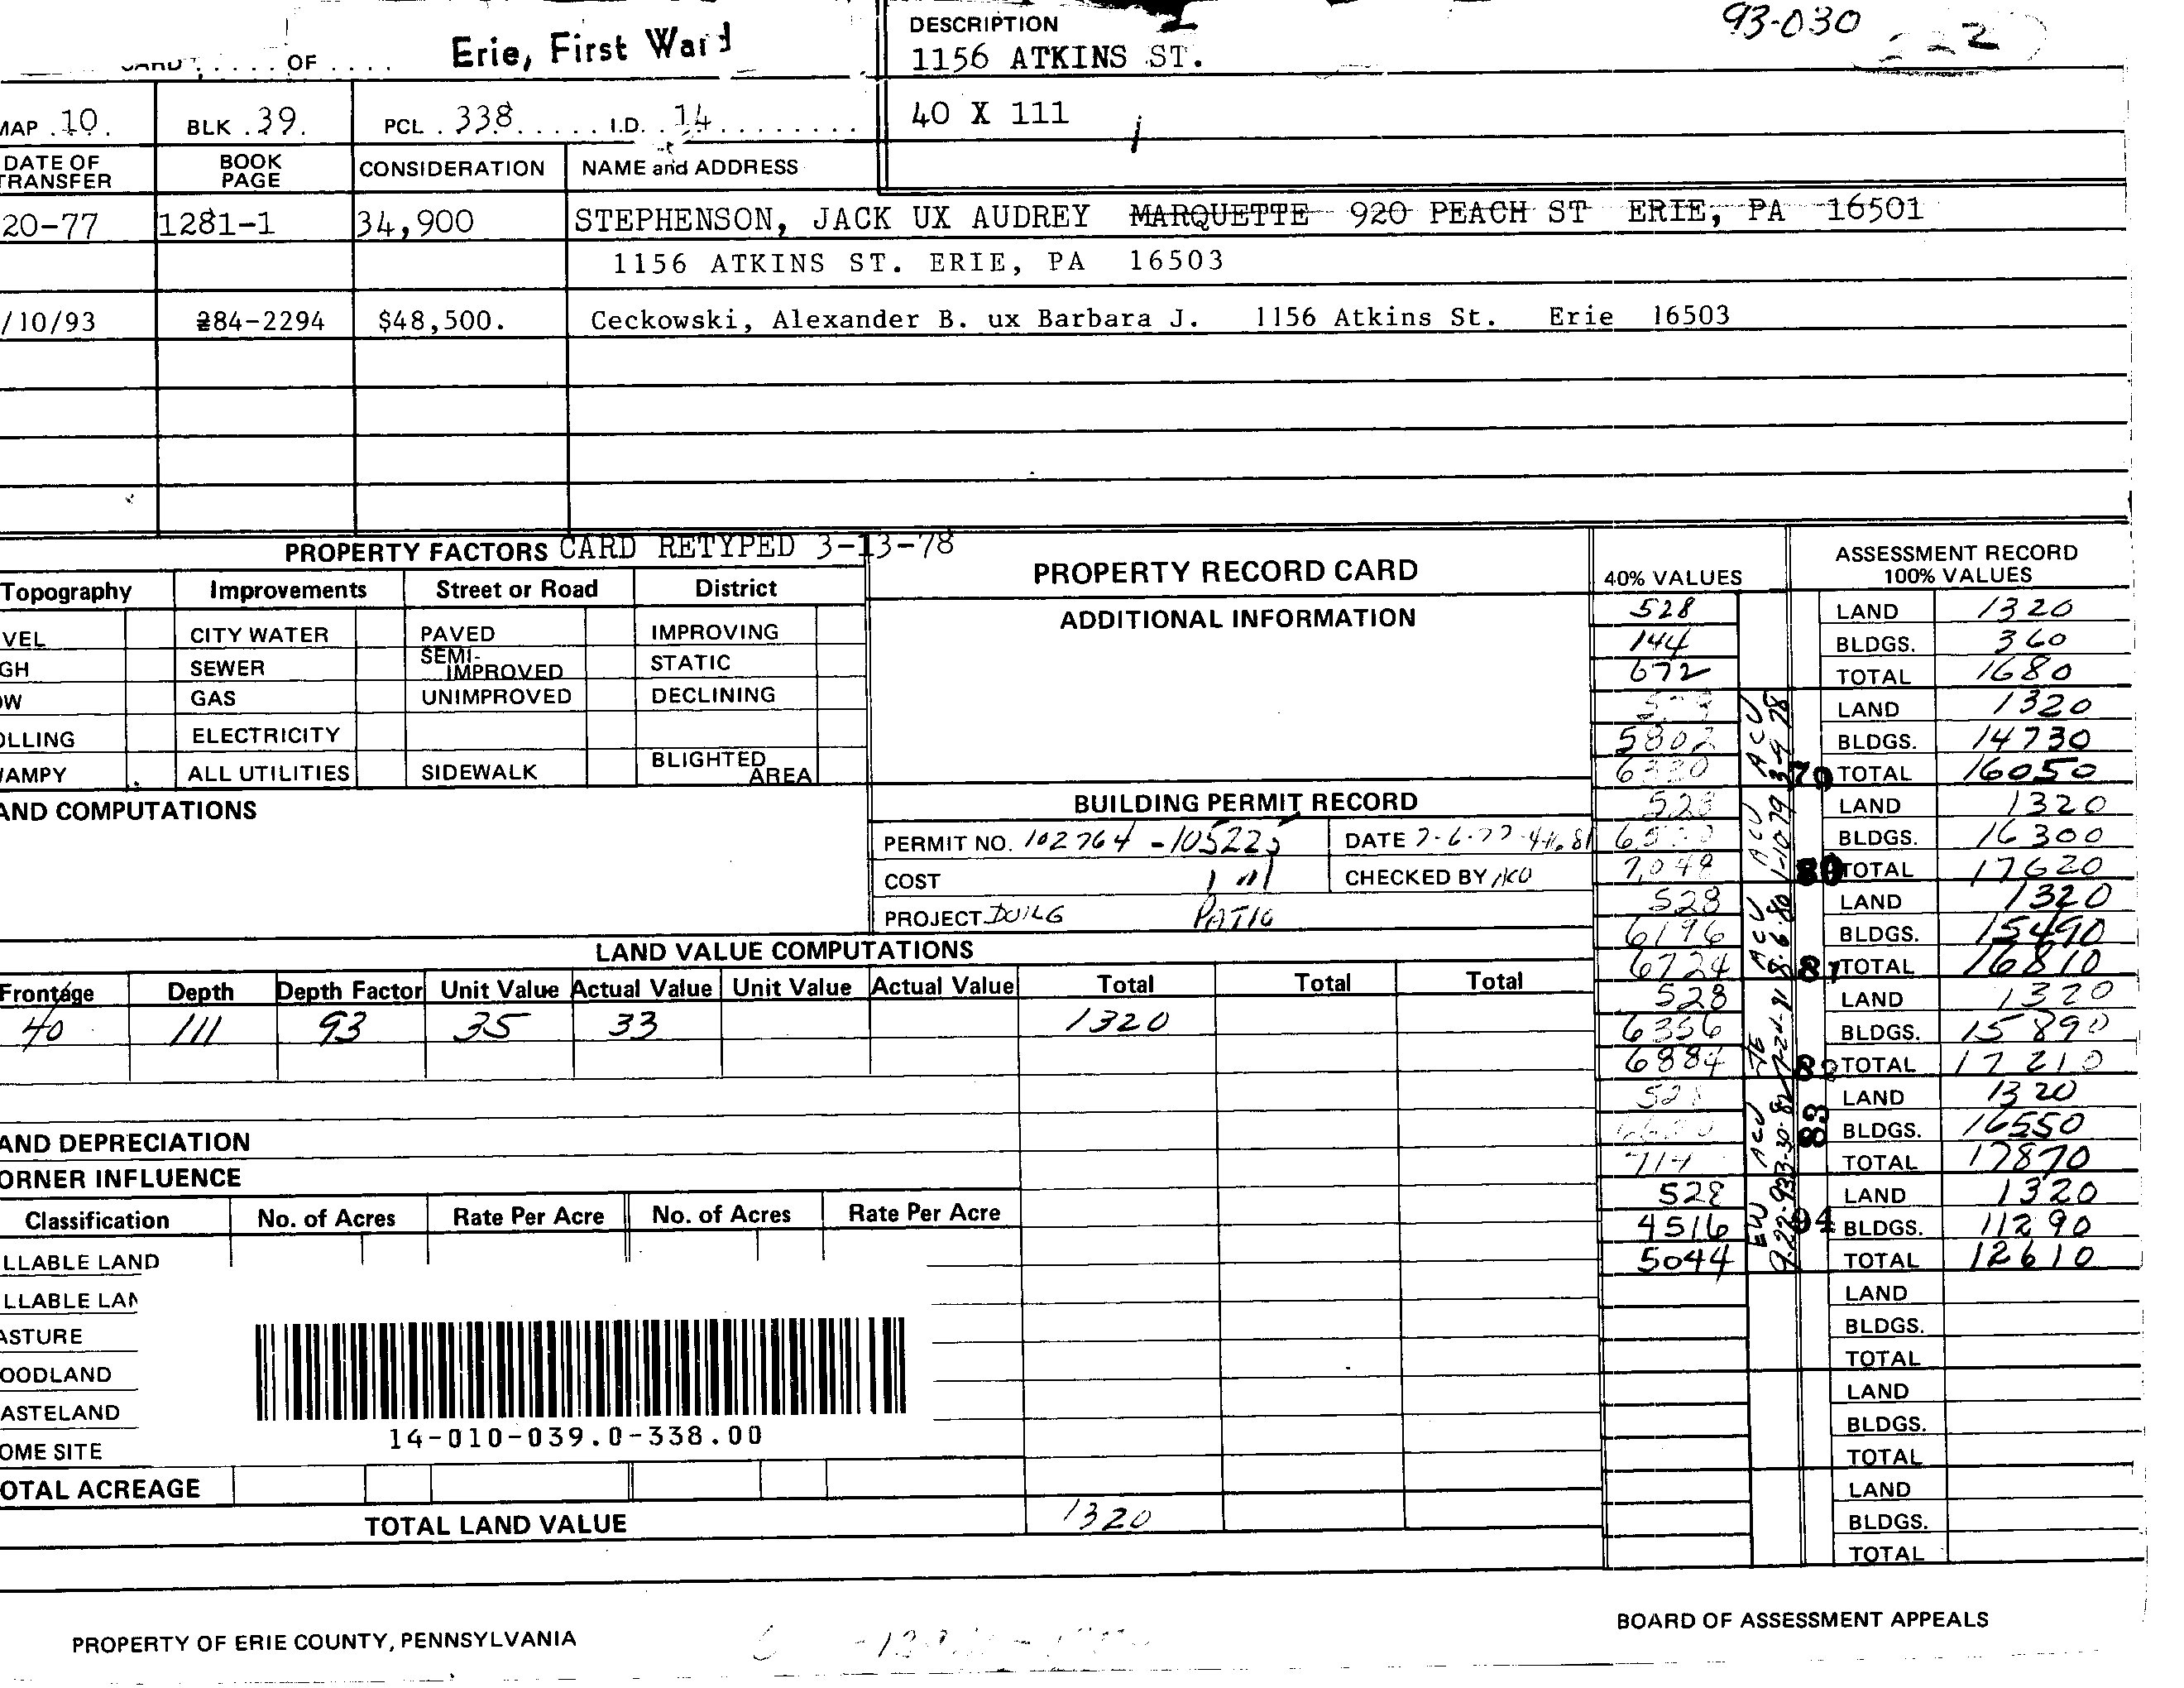 93-030
Erie, First Ward
DESCRIPTION
1156 ATKINS ST.
OF
MAP 10. BLK 39. PCL 338 I.D. 14
40 X 111
DATE OF TRANSFER BOOK PAGE CONSIDERATION NAME and ADDRESS
20-77 1281-1 34,900 STEPHENSON, JACK UX AUDREY MARQUETTE 920 PEACH ST ERIE, PA 16501
1156 ATKINS ST. ERIE, PA 16503
/10/93 284-2294 $48,500. Ceckowski, Alexander B. ux Barbara J. 1156 Atkins St. Erie 16503
PROPERTY FACTORS CARD RETYPED 3-13-78
Topography Improvements Street or Road District
VEL CITY WATER PAVED IMPROVING
GH SEWER SEMI-IMPROVED STATIC
OW GAS UNIMPROVED DECLINING
OLLING ELECTRICITY
AMPY ALL UTILITIES SIDEWALK BLIGHTED AREA
PROPERTY RECORD CARD
ADDITIONAL INFORMATION
BUILDING PERMIT RECORD
PERMIT NO. 102764 - 105225 DATE 7-6-77
COST CHECKED BY ACU
PROJECT DWLG PATIO
40% VALUES ASSESSMENT RECORD 100% VALUES
528 LAND 1320
144 BLDGS. 360
672 TOTAL 1680
LAND 1320
5802 ACU 3-9-78 BLDGS. 14730
6330 79 TOTAL 16050
528 LAND 1320
ACU 1-10-79 BLDGS. 16300
7,048 80 TOTAL 17620
528 LAND 1320
6196 ACU 8-6-80 BLDGS. 15490
6724 81 TOTAL 16810
528 LAND 1320
6356 BLDGS. 15890
6884 82 TOTAL 17210
528 LAND 1320
ACU 3-30-82 83 BLDGS. 16550
TOTAL 17870
528 LAND 1320
4516 EW 9-22-93 94 BLDGS. 11290
5044 TOTAL 12610
LAND
BLDGS.
TOTAL
LAND
BLDGS.
TOTAL
LAND
BLDGS.
TOTAL
AND COMPUTATIONS
LAND VALUE COMPUTATIONS
Frontage Depth Depth Factor Unit Value Actual Value Unit Value Actual Value Total Total Total
40 111 93 35 33 1320
AND DEPRECIATION
ORNER INFLUENCE
Classification No. of Acres Rate Per Acre No. of Acres Rate Per Acre
LLABLE LAND
LLABLE LAN
ASTURE
OODLAND
ASTELAND
OME SITE
14-010-039.0-338.00
OTAL ACREAGE
TOTAL LAND VALUE 1320
PROPERTY OF ERIE COUNTY, PENNSYLVANIA
BOARD OF ASSESSMENT APPEALS